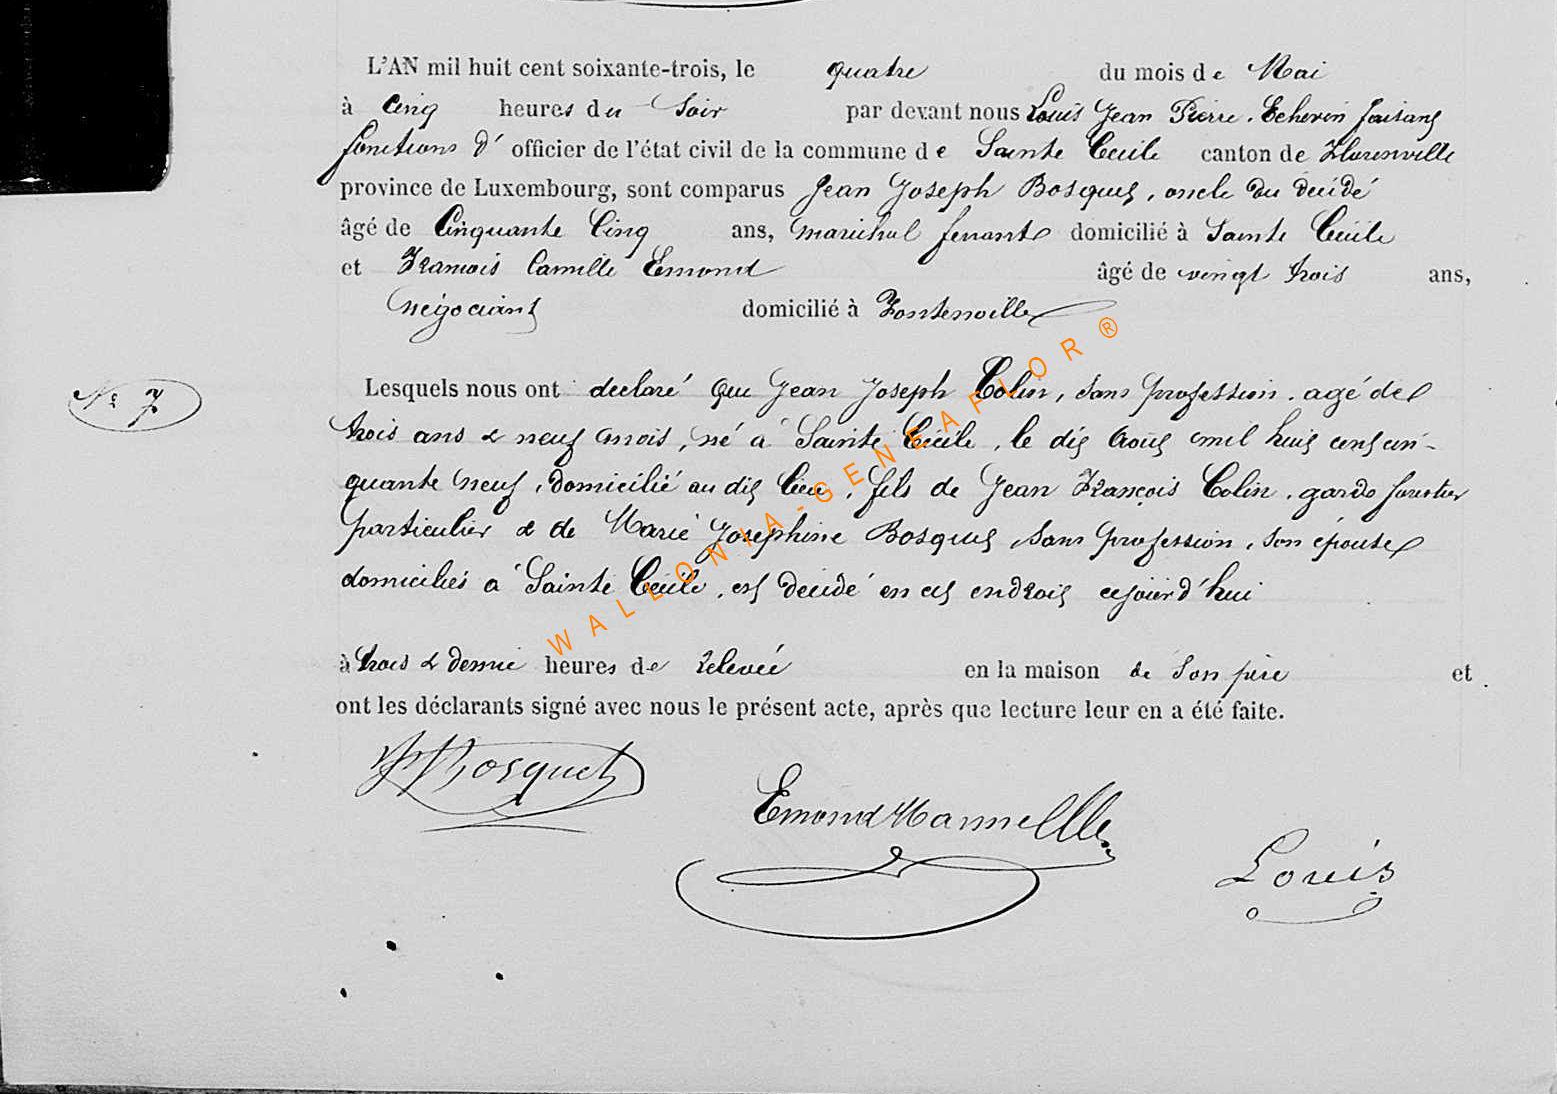 L'AN mil huit cent soixante-trois, le quatre du mois de Mai
à Cinq heures du Soir par devant nous Louis Jean Pierre, Echevin faisant
fonctions d' officier de l'état civil de la commune de Sainte Cecile canton de Florenville
province de Luxembourg, sont comparus Jean Joseph Bosquet, oncle du décédé
âgé de Cinquante Cinq ans, maréchal ferrant domicilié à Sainte Cécile
et Francois Camille Emond âgé de vingt trois ans,
négociant domicilié à Fontenoille
N° 7
Lesquels nous ont declaré que Jean Joseph Colin, sans profession, agé de
trois ans & neuf mois, né à Sainte Cécile, le dix Août mil huit cent cin-
quante neuf, domicilié au dit lieu, fils de Jean François Colin, garde forestier
particulier & de Marie Josephine Bosquet, sans profession, son épouse
domiciliés à Sainte Cécile, est décédé en cet endroit cejourd'hui
à trois & demie heures de relevée en la maison de son père et
ont les déclarants signé avec nous le présent acte, après que lecture leur en a été faite.
Bosquet
Emond
Louis
WALLONIA-GENEAFLOR ®